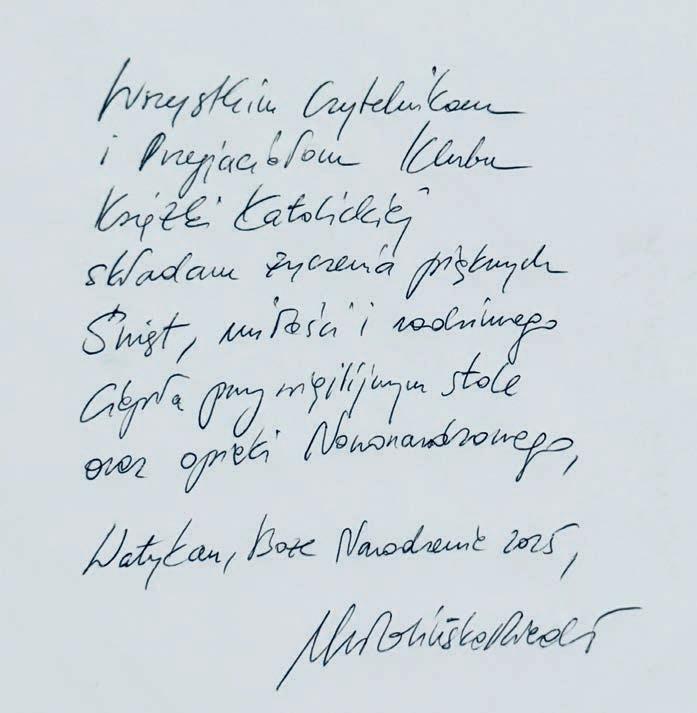 Wszystkim Czytelnikom
i Przyjaciołom Klubu
Książki Katolickiej
składam życzenia pięknych
Świąt, miłości i rodzinnego
ciepła przy wigilijnym stole
oraz opieki Nowonarodzonego,
Watykan, Boże Narodzenie 2025,